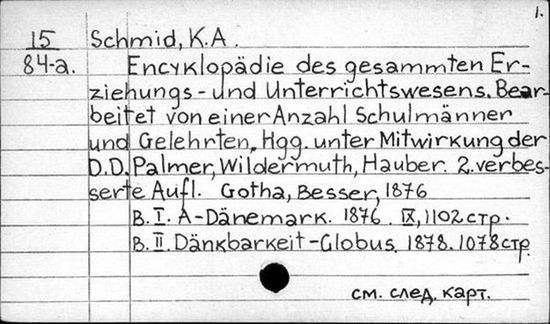 1.
15 Schmid, K.A.
84-a. Encyklopädie des gesammten Er-
ziehungs- und Unterrichtswesens. Bear-
beitet von einer Anzahl Schulmänner
und Gelehrten, Hgg. unter Mitwirkung der
D.D. Palmer, Wildermuth, Hauber. 2. verbes-
serte Aufl. Gotha, Besser, 1876
B. I. A-Dänemark. 1876. IX, 1102 стр.
B. II. Dänkbarkeit-Globus. 1878. 1078 стр
см. след. карт.